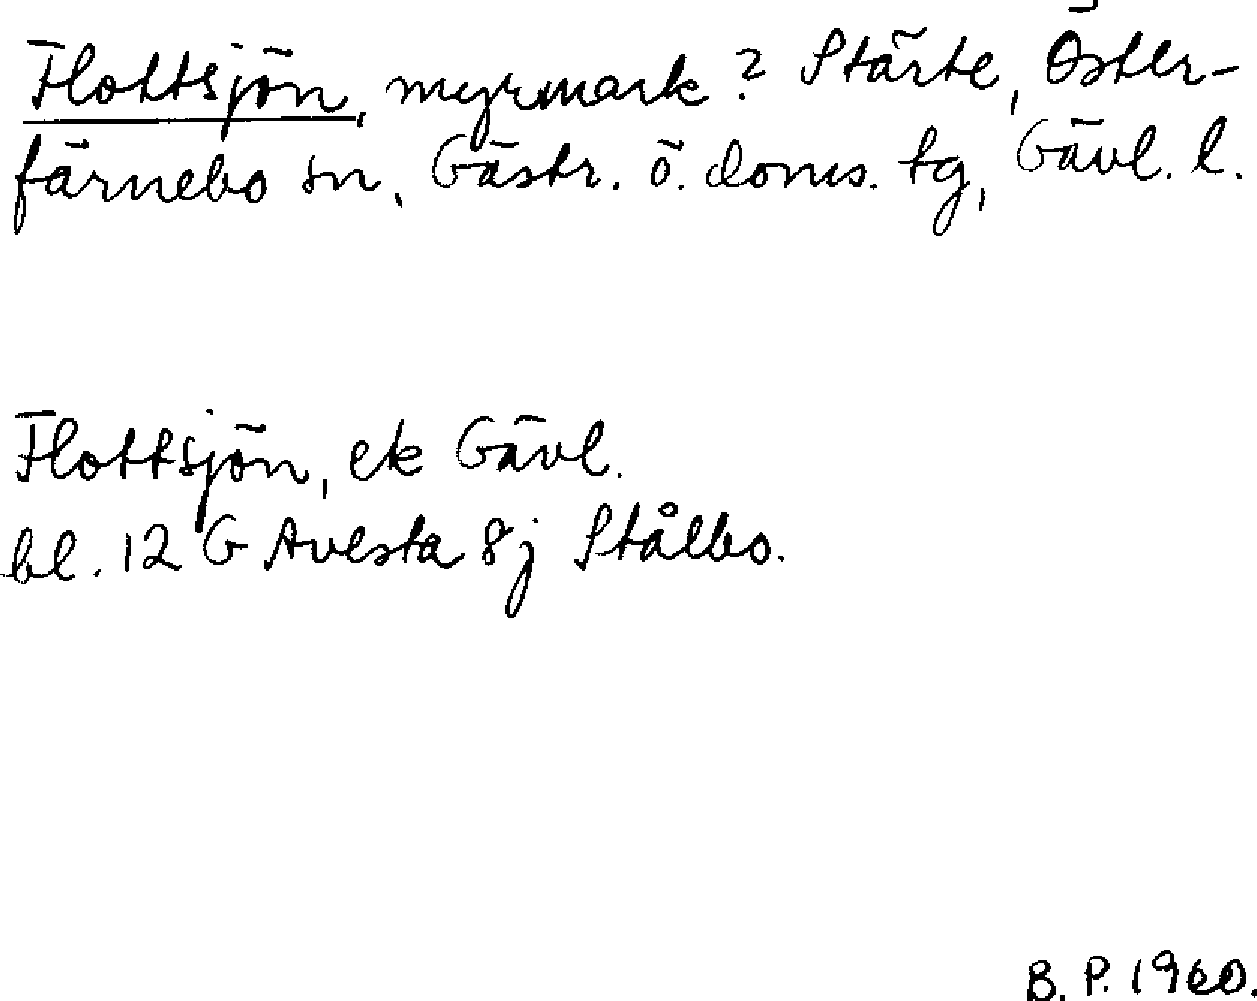 Flottsjön, myrmark? Stärte, Öster-
färnebo sn, Gästr. ö. doms. tg, Gävl. l.
Flottsjön, ek Gävl.
bl. 12 G Avesta 8j Stålbo.
B. P. 1960.